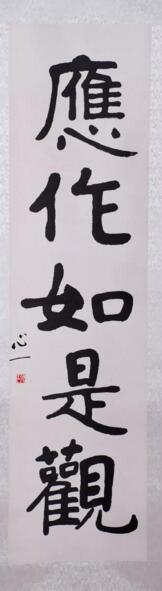 應作如是觀
心一